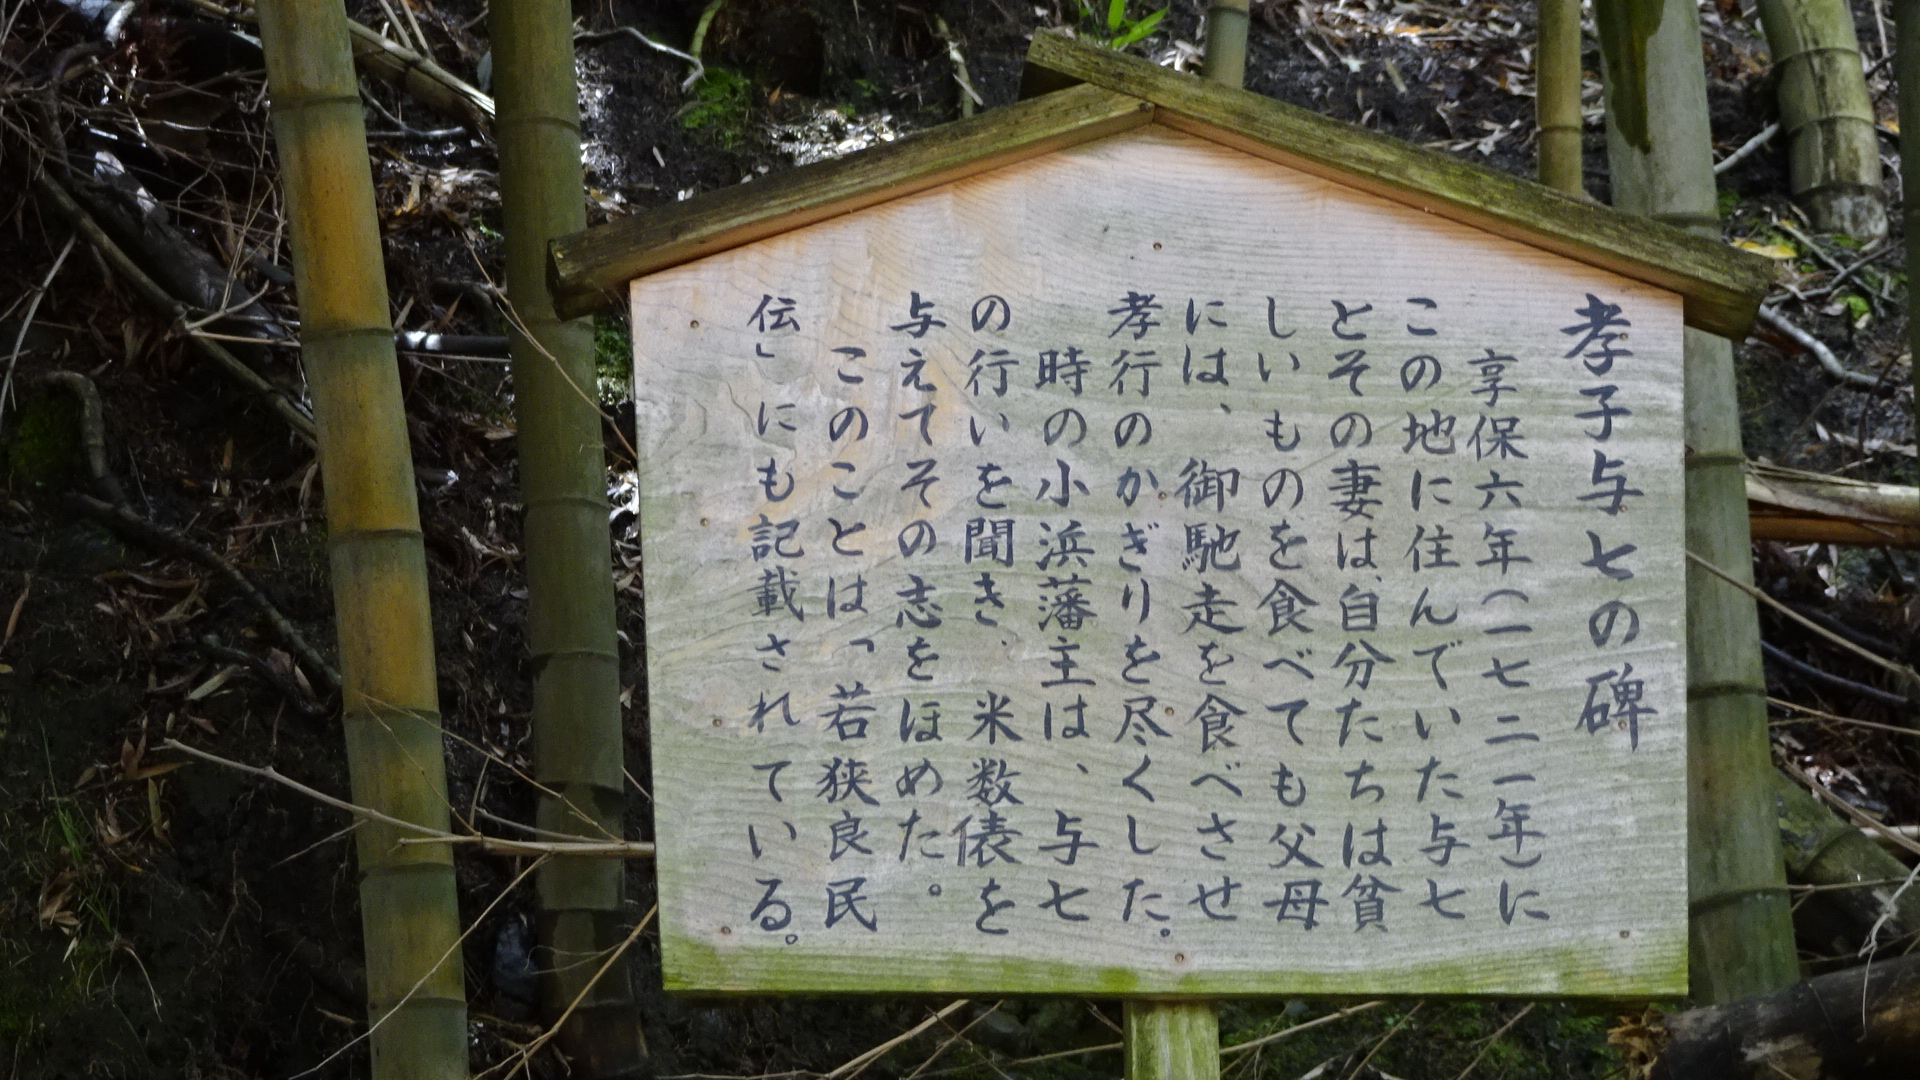 孝子与七の碑
享保六年（一七二一年）に
この地に住んでいた与七
とその妻は、自分たちは貧
しいものを食べても父母
には、御馳走を食べさせ
孝行のかぎりを尽くした。
時の小浜藩主は、与七
の行いを聞き、米数俵を
与えてその志をほめた。
このことは「若狭良民
伝」にも記載されている。